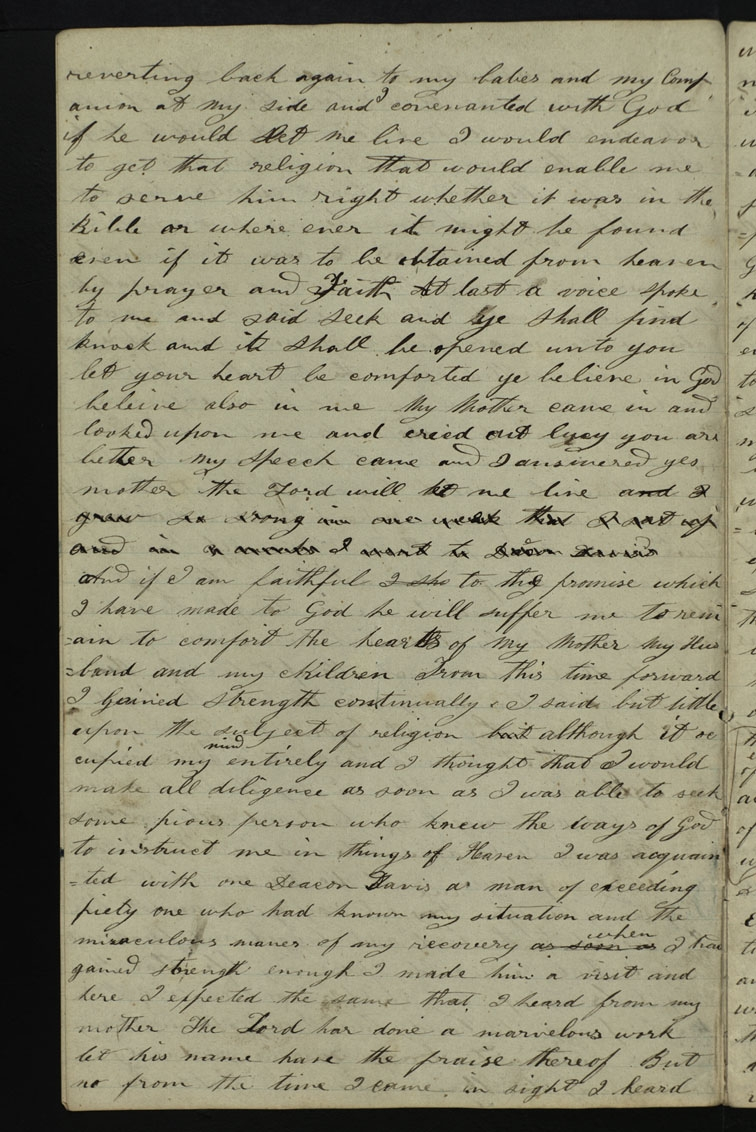 reverting back again to my babes and my Comp
anion at my side and I covenanted with God
if he would let me live I would endeavor
to get that religion that would enable me
to serve him right whether it was in the
Bible or where ever it might be found
even if it was to be obtained from heaven
by prayer and Faith At last a voice spoke
to me and said seek and ye shall find
knock and it shall be opened unto you
let your heart be comforted ye believe in God
beleive also in me My Mother came in and
looked upon me and cried out lucy you are
better my speech came and I answered yes
mother the Lord will let me live and I
grew so strong in one week that I sat up
and in a month I went to
And if I am faithful I sho to the promise which
I have made to God he will suffer me to rem
=ain to comfort the hearts of my Mother my Hus
=band and my children From this time forward
I gained strength continually I said but little
upon the subject of religion but although it oc
cupied my mind entirely and I thought that I would
make all diligence as soon as I was able to seek
some pious person who knew the ways of God
to instruct me in things of Heaven I was acquain
=ted with one Deacon Davis a man of exceeding
piety one who had known my situation and the
miraculous maner of my recovery as soon as when I had
gained strength enough I made him a visit and
here I expected the same that I heard from my
mother The Lord has done a marvelous work
let his name have the praise thereof But
no from the time I came in sight I heard